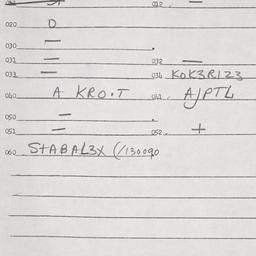 012. —
020. O
030. —
031. — 032 —
033. — 034 KOK3R123
040. A KRO.T 041. AJPTL
050. —
051. — 052. +
060 STABAL3X (/130090